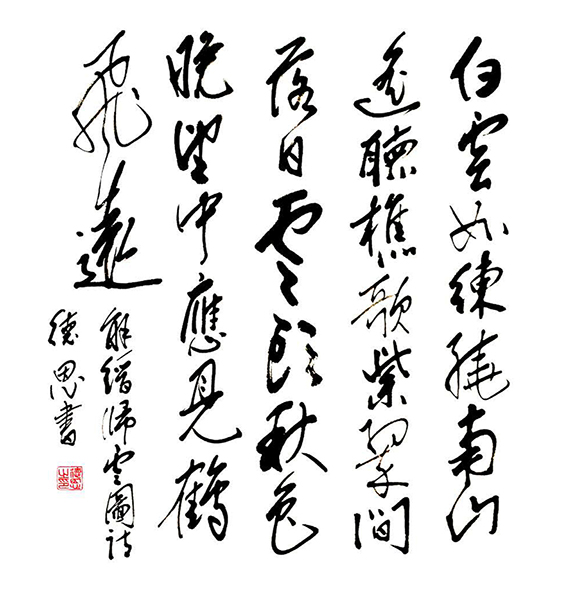 白雲如練繞南山
遙聽樵歌紫翠間
落日雲頭秋色
晚望中應見鶴
飛還
解縉歸雲圖詩
德思書